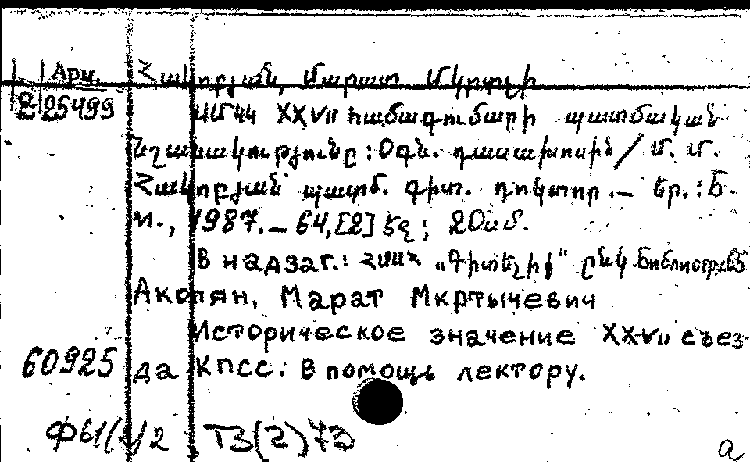 Арм. Հակոբյան, Մարատ Մկրտչի
2 05499 ՍՄԿԿ XXVII համագումարի պատմական
նշանակությունը : Օգն. դասախոսին / Մ. Մ.
Հակոբյան պատմ. գիտ. դոկտոր. — Եր. : Б.
и., 1987. — 64, [2] էջ ; 20սմ.
В надзаг.: ՀՍՍՀ „Գիտելիք“ ընկ
Акопян, Марат Мкртычевич
Историческое значение XXVII съез-
60925 да КПСС: В помощь лектору.
ТЗ(2)73
а